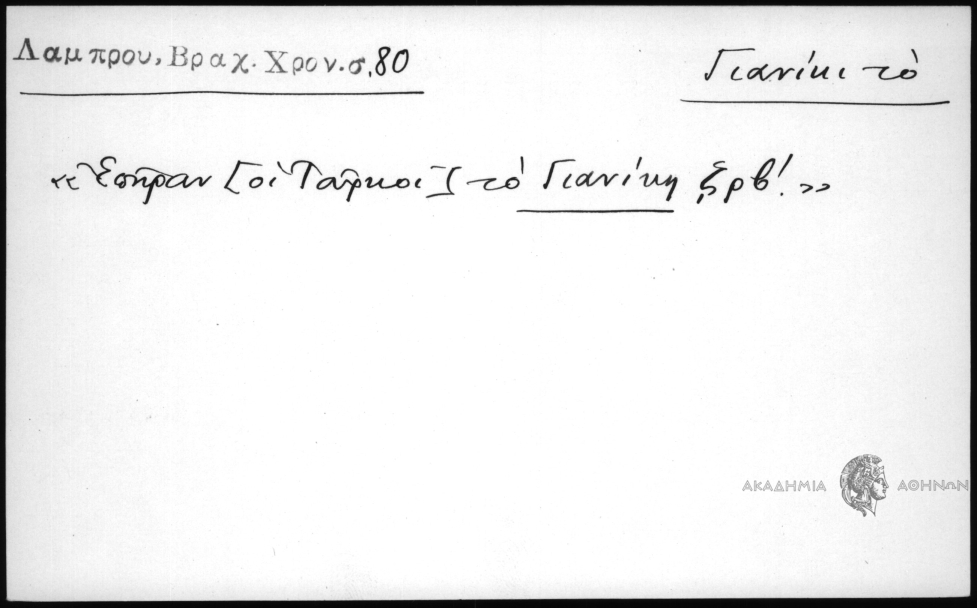 Λαμπρου, Βραχ. Χρον. σ. 80
Γιανίκι τὸ
«Ἐπῆραν [οἱ Τοῦρκοι] τὸ Γιανίκη ͵ςρβ´.»
ΑΚΑΔΗΜΙΑ ΑΘΗΝΩΝ